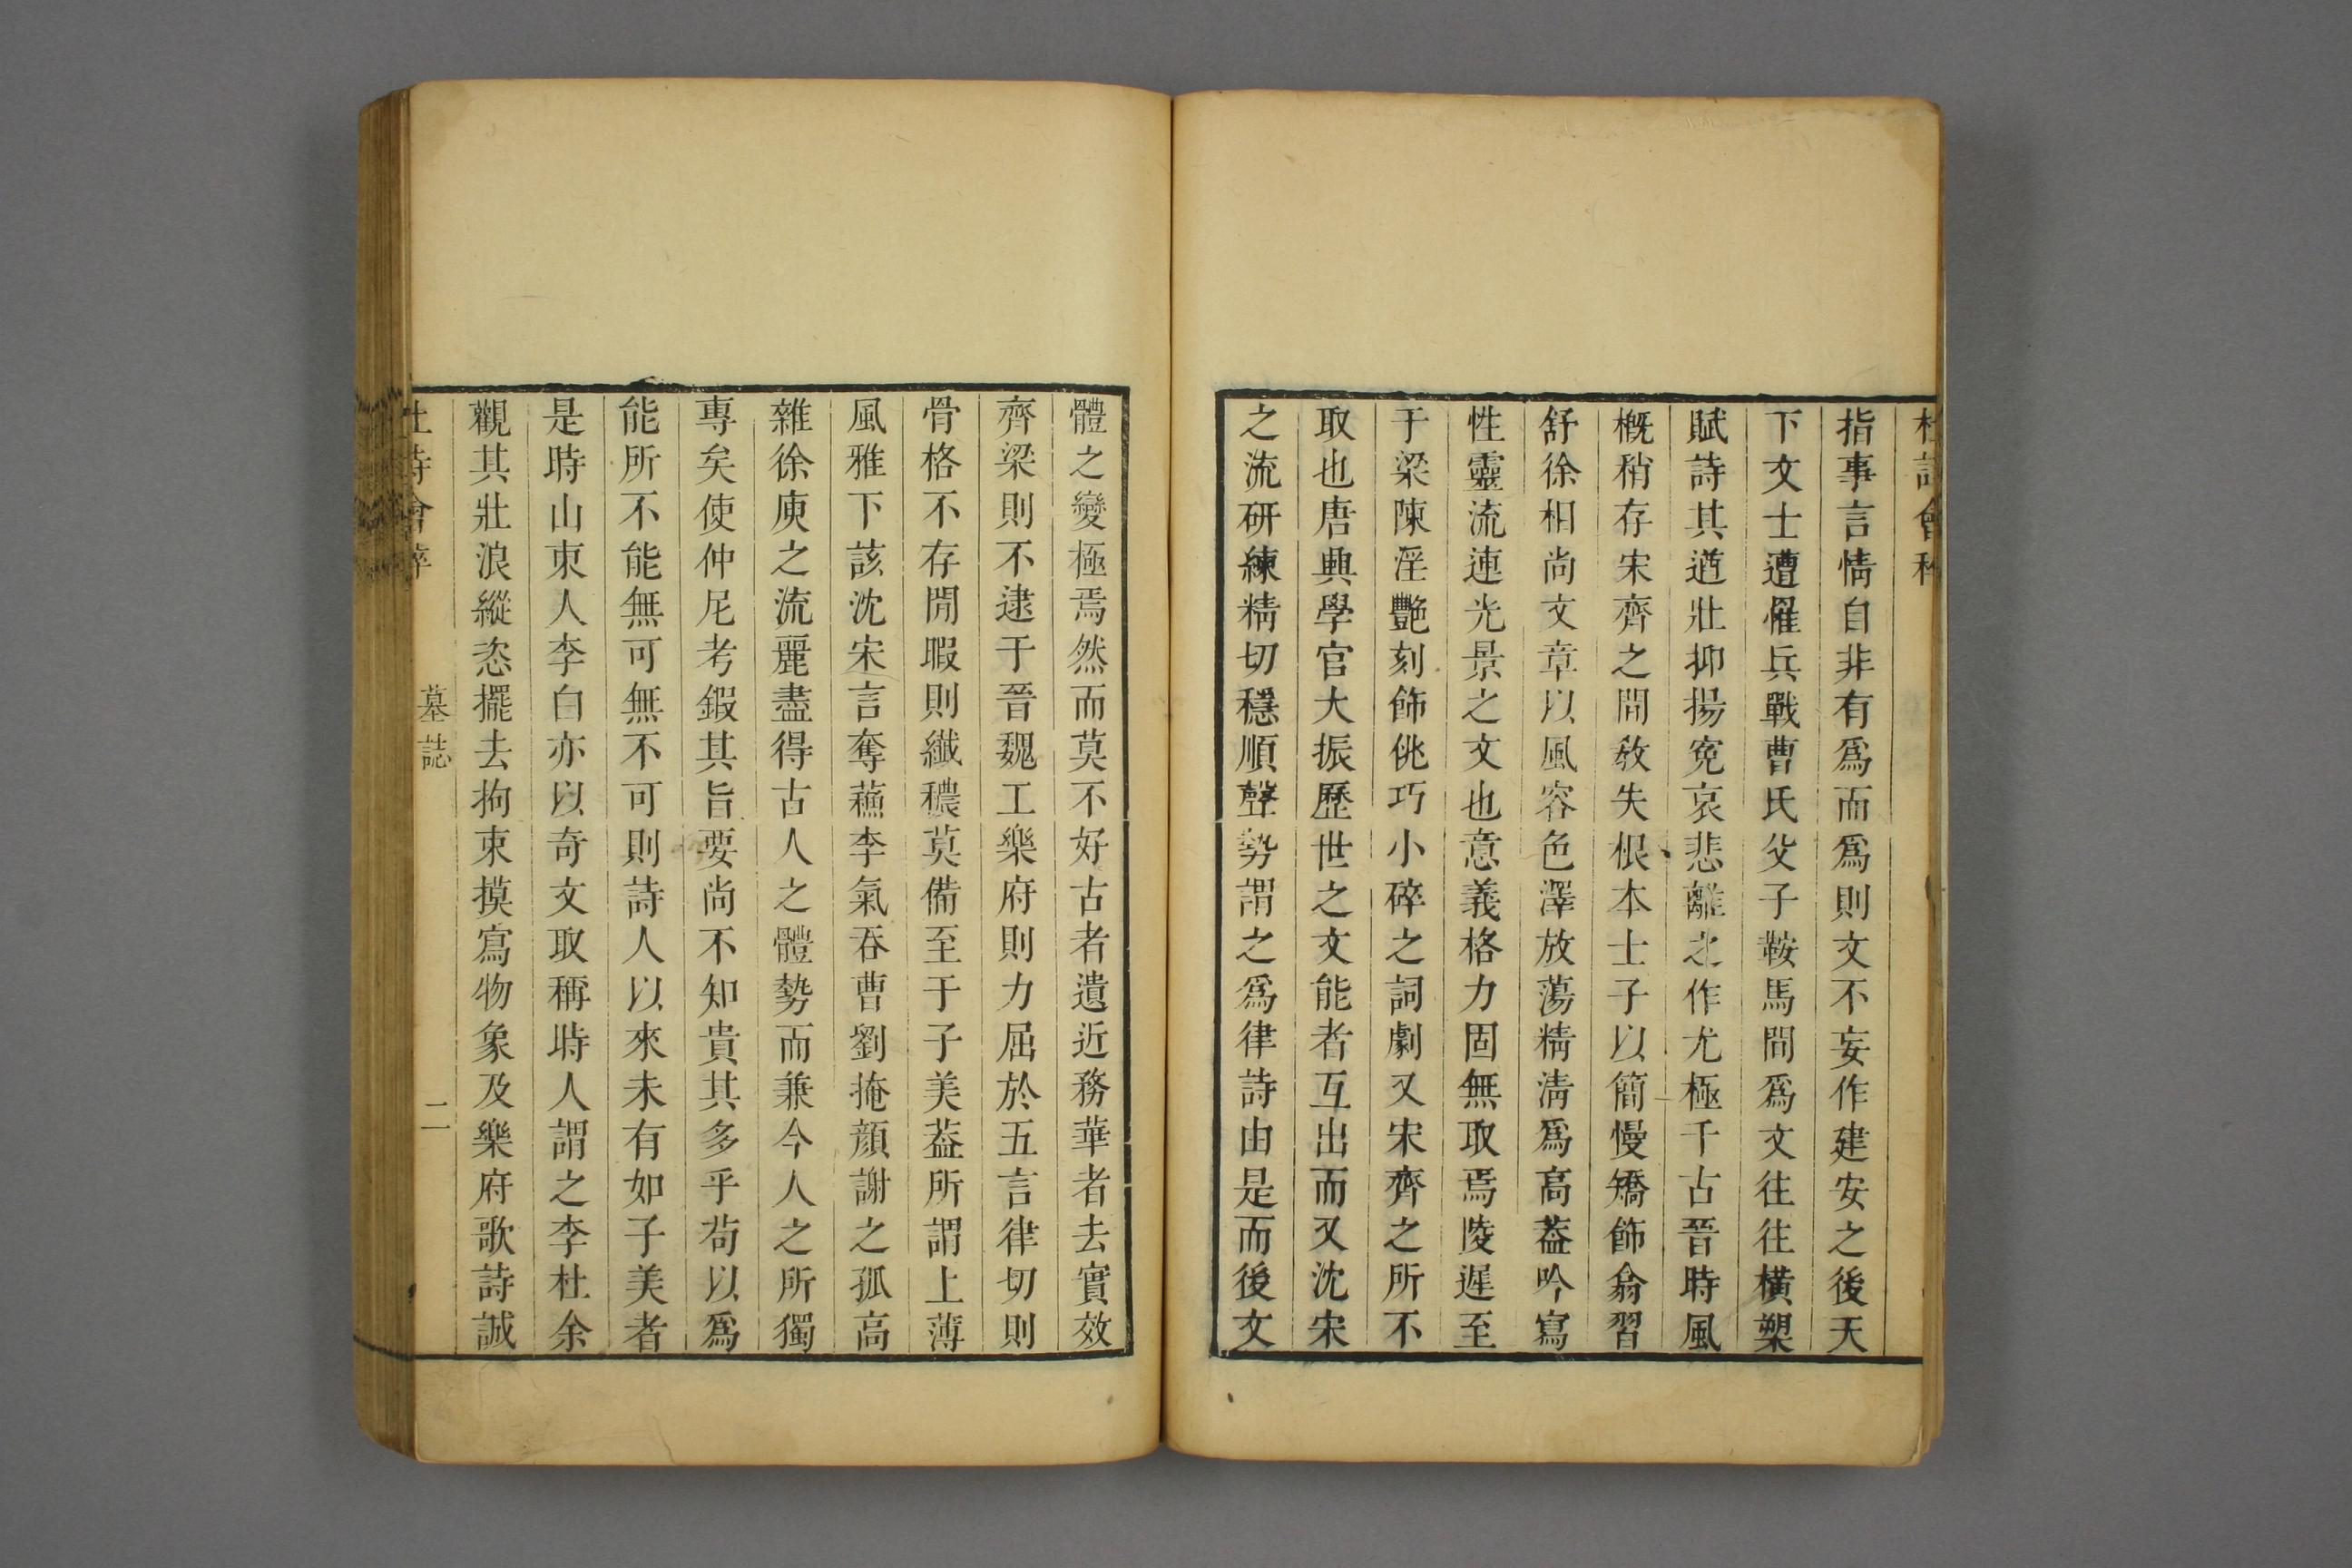 杜詩會稡
指事言情自非有爲而爲則文不妄作建安之後天
下文士遭罹兵戰曹氏父子鞍馬間爲文往往橫槊
賦詩其遒壯抑揚寃哀悲離之作尤極千古晉時風
概稍存宋齊之間敎失根本士子以簡慢矯飾翕習
舒徐相尚文章以風容色澤放蕩精清爲高葢吟寫
性靈流連光景之文也意義格力固無取焉陵遲至
于梁陳淫艷刻飾佻巧小碎之詞劇又宋齊之所不
取也唐興學官大振歷世之文能者互出而又沈宋
之流研練精切穩順聲勢謂之爲律詩由是而後文
體之變極焉然而莫不好古者遺近務華者去實效
齊梁則不逮于晉魏工樂府則力屈於五言律切則
骨格不存閒暇則纖穠莫備至于子美葢所謂上薄
風雅下該沈宋言奪蘇李氣吞曹劉掩顏謝之孤高
雜徐庾之流麗盡得古人之體勢而兼今人之所獨
專矣使仲尼考鍜其旨要尚不知貴其多乎茍以爲
能所不能無可無不可則詩人以來未有如子美者
是時山東人李白亦以奇文取稱時人謂之李杜余
觀其壯浪縱恣擺去拘束摸寫物象及樂府歌詩誠
杜詩會稡 墓誌 二